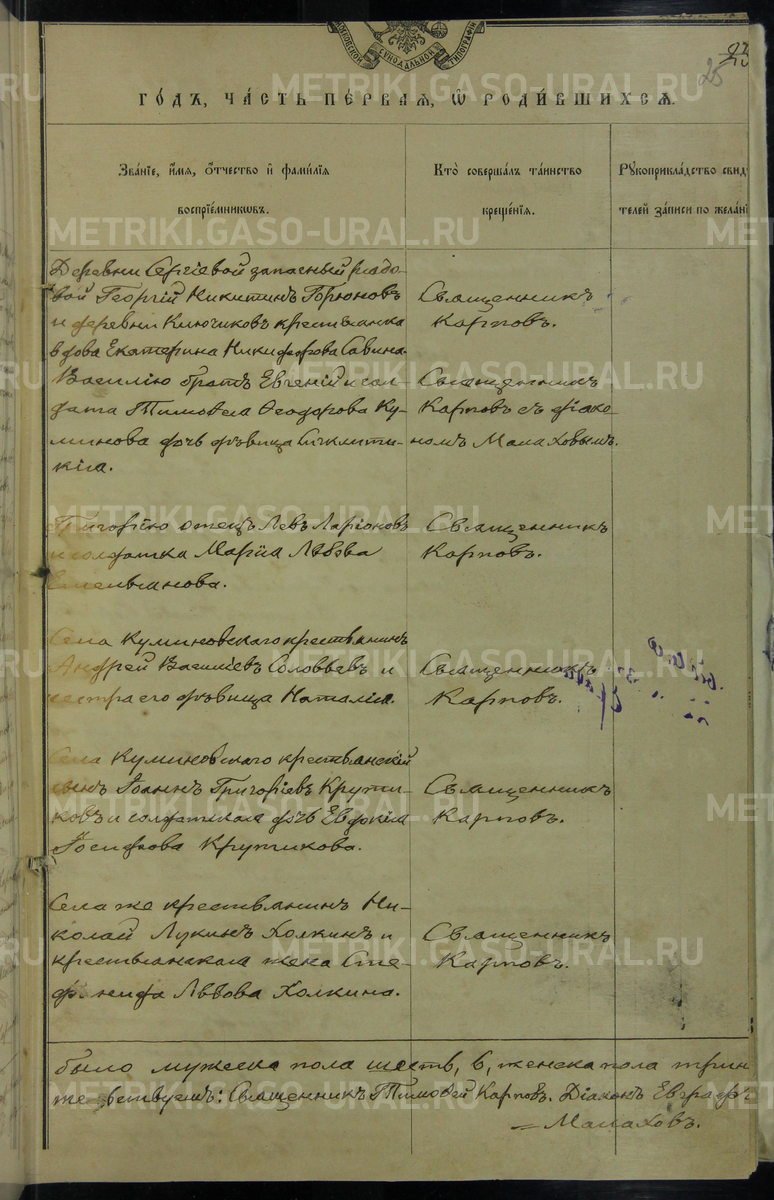 МОСКОВСКОЙ СѴНОДАЛЬНОЙ ТИПОГРАФІИ
25
ГОДЪ, ЧАСТЬ ПЕРВАЯ, Ѡ РОДИВШИХСЯ.
Званіе, имя, отчество и фамилія воспріемниковъ.
Кто совершалъ таинство крещенія.
Рукоприкладство свид
телей записи по желані
Деревни Сергіевой запасный рядо-
вой Георгій Никитинъ Горюновъ
и деревни Ключиковъ крестьянка
вдова Екатерина Никифорова Савина.
Священникъ
Карповъ.
Василію братъ Евгеній и сол-
дата Тимоѳея Ѳеодорова Ку-
минова дочь дѣвица Сигклити-
кія.
Священникъ
Карповъ съ діако-
номъ Малаховымъ.
Григорію отецъ Левъ Ларіоновъ
и солдатка Марія Львова
Емельянова.
Священникъ
Карповъ.
Села Куминовскаго крестьянинъ
Андрей Василіевъ Соловьевъ и
сестра его дѣвица Наталія.
Священникъ
Карповъ.
Села Куминовскаго крестьянскій
сынъ Іоаннъ Григоріевъ Крути-
ковъ и солдатская дочь Евдокія
Іосифова Крутикова.
Священникъ
Карповъ.
Села же крестьянинъ Ни-
колай Лукинъ Холкинъ и
крестьянская жена Сте-
фанида Львова Холкина.
Священникъ
Карповъ.
было мужеска пола шесть, 6, женска пола три
Священникъ Тимоѳей Карповъ. Діаконъ Евграфъ
Малаховъ.
METRIKI.GASO-URAL.RU